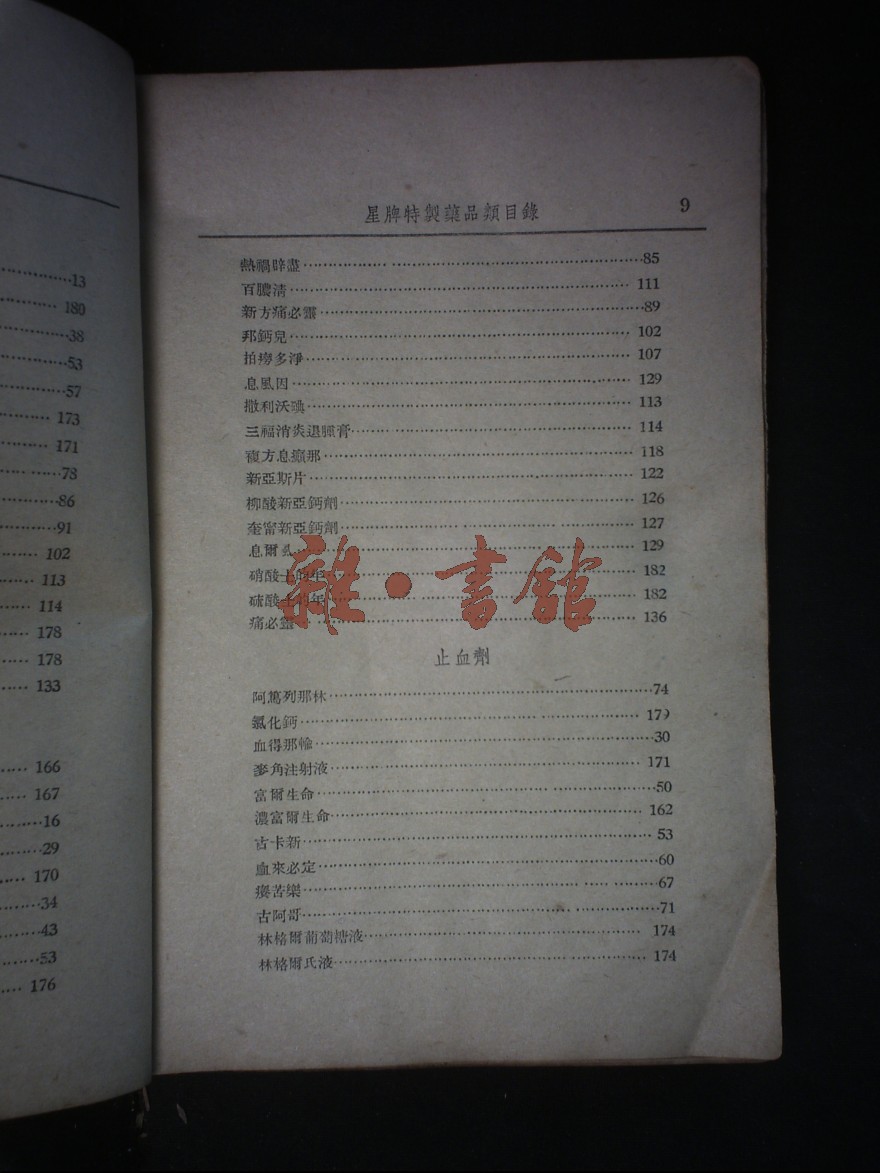 13
180
38
53
57
173
171
78
86
91
102
113
114
178
178
133
166
167
16
29
170
34
43
53
176
星牌特製藥品類目錄 9
熱禍辟盡 85
百膿淸 111
新方痛必靈 89
邦鈣兒 102
拍癆多淨 107
息風因 129
撒利沃碘 113
三福消炎退腫膏 114
複方息癲那 118
新亞斯片 122
柳酸新亞鈣劑 126
奎甯新亞鈣劑 127
息爾 129
硝酸士的年 182
硫酸士的年 182
痛必靈 136
雜·書舘
止血劑
阿篤列那林 74
氯化鈣 179
血得那輸 30
麥角注射液 171
富爾生命 50
濃富爾生命 162
古卡新 53
血來必定 60
瘼苦樂 67
古阿哥 71
林格爾葡萄糖液 174
林格爾氏液 174